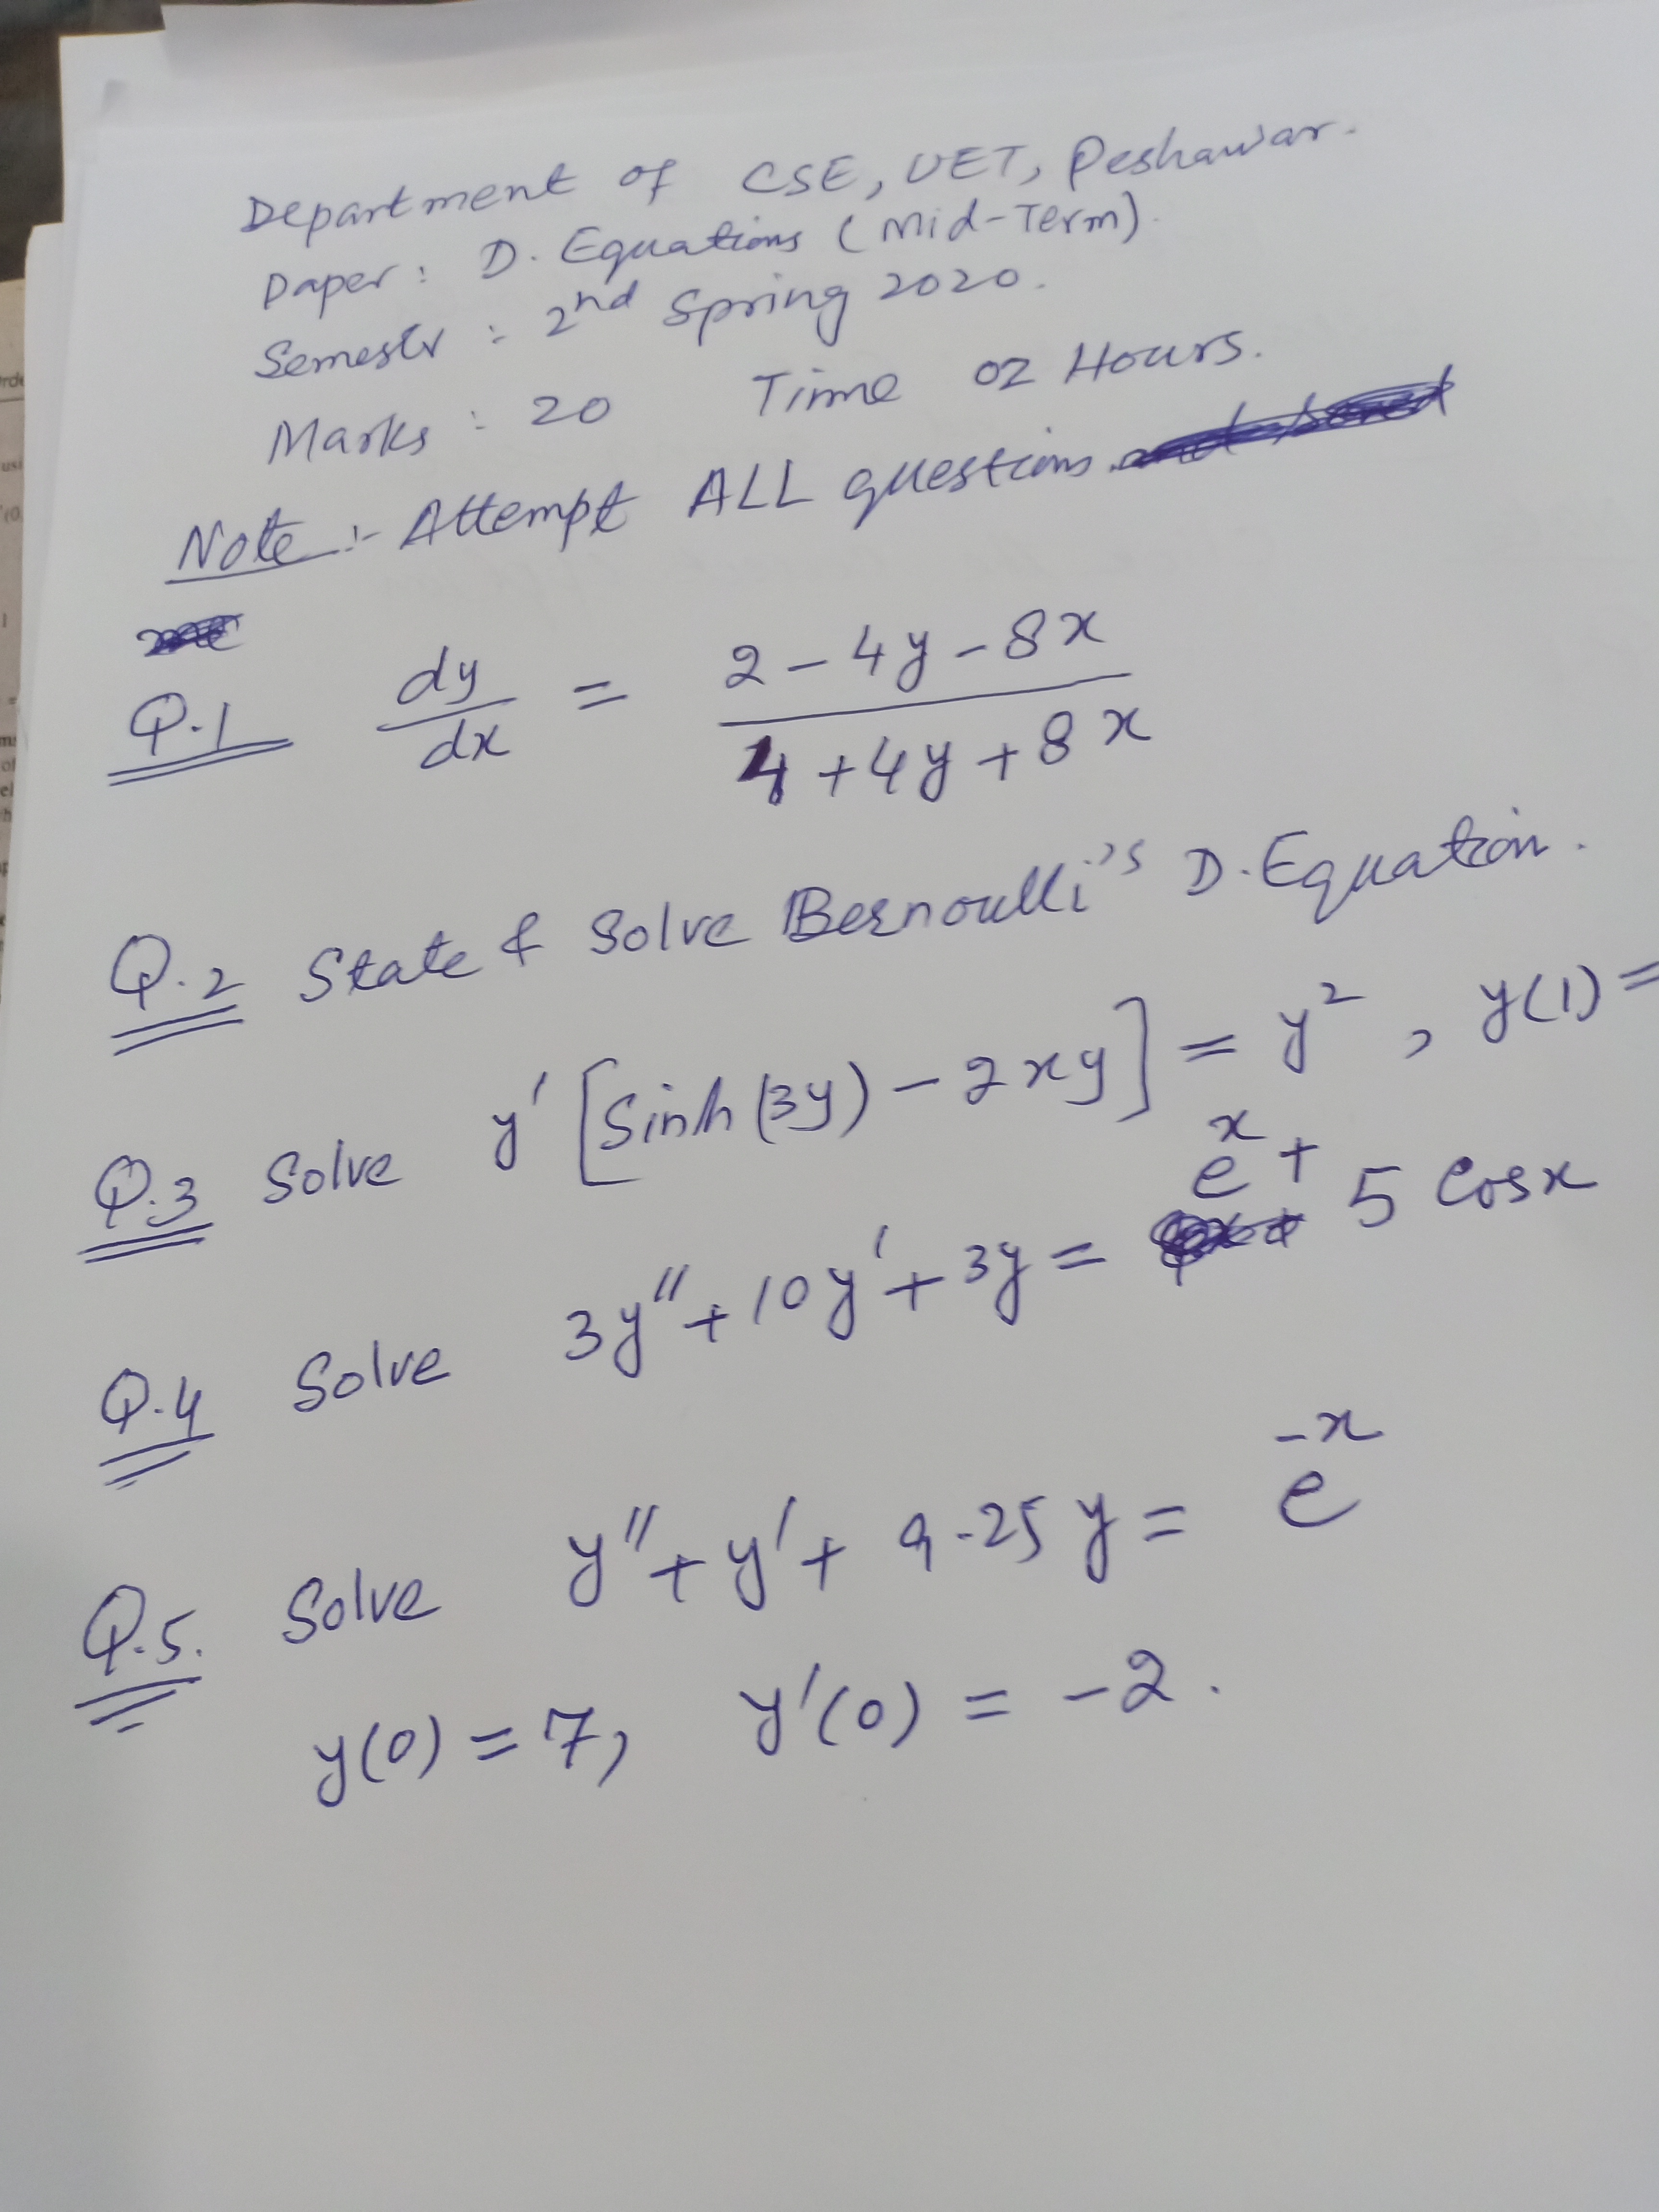 Department of CSE, UET, Peshawar.
Paper: D. Equations (Mid-Term).
Semestr : 2nd Spring 2020.
Marks : 20 Time 02 Hours.
Note :- Attempt ALL questions.
Q.1 dy/dx = (2 - 4y - 8x)/(4 + 4y + 8x)
Q.2 State & Solve Bernoulli's D. Equation.
Q.3 Solve y' [Sinh(3y) - 2xy] = y², y(1) =
Q.4 Solve 3y'' + 10y' + 3y = e^x + 5 Cosx
Q.5. Solve y'' + y' + 9.25 y = e^-x
y(0) = 7, y'(0) = -2.